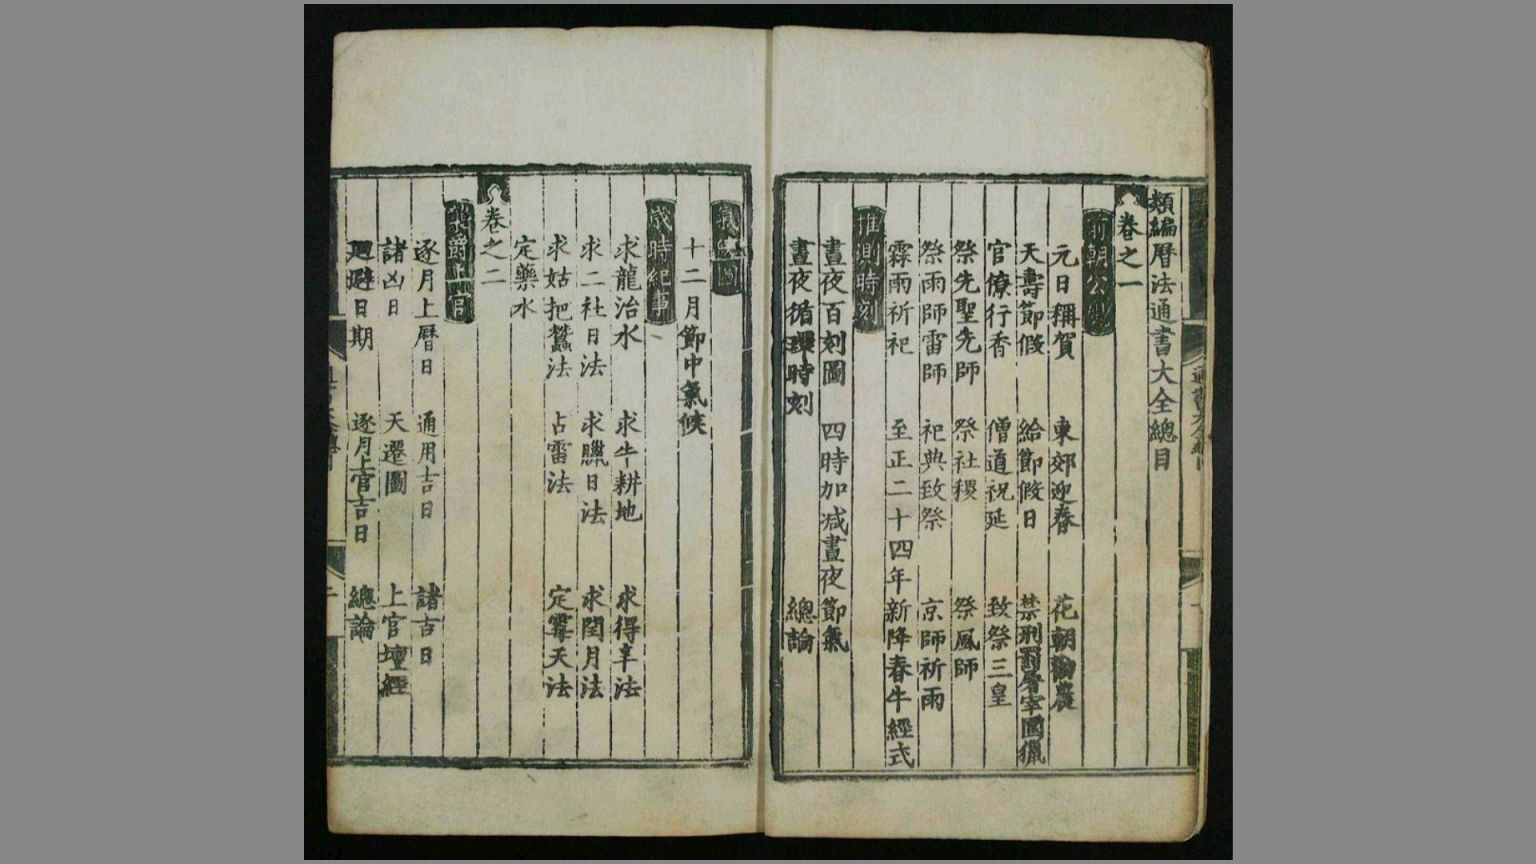 類編曆法通書大全總目
卷之一
前朝公
元日稱賀 東郊迎春 花朝勸農
天壽節假 給節假日 禁刑罰屠宰圍獵
官僚行香 僧道祝延 致祭三皇
祭先聖先師 祭社稷 祭風師
祭雨師雷師 祀典致祭 京師祈雨
霖雨祈祀 至正二十四年新降春牛經式
推測時刻
晝夜百刻圖 四時加減晝夜節氣
晝夜循環時刻 總論
十二月節中氣候
歲時紀事
求龍治水 求牛耕地 求得辛法
求二社日法 求臘日法 求閏月法
求姑把蠶法 占雷法 定霉天法
定藥水
卷之二
逐月上曆日 通用吉日 諸吉日
諸凶日 天遷圖 上官壇經
廻避日期 逐月上官吉日 總論